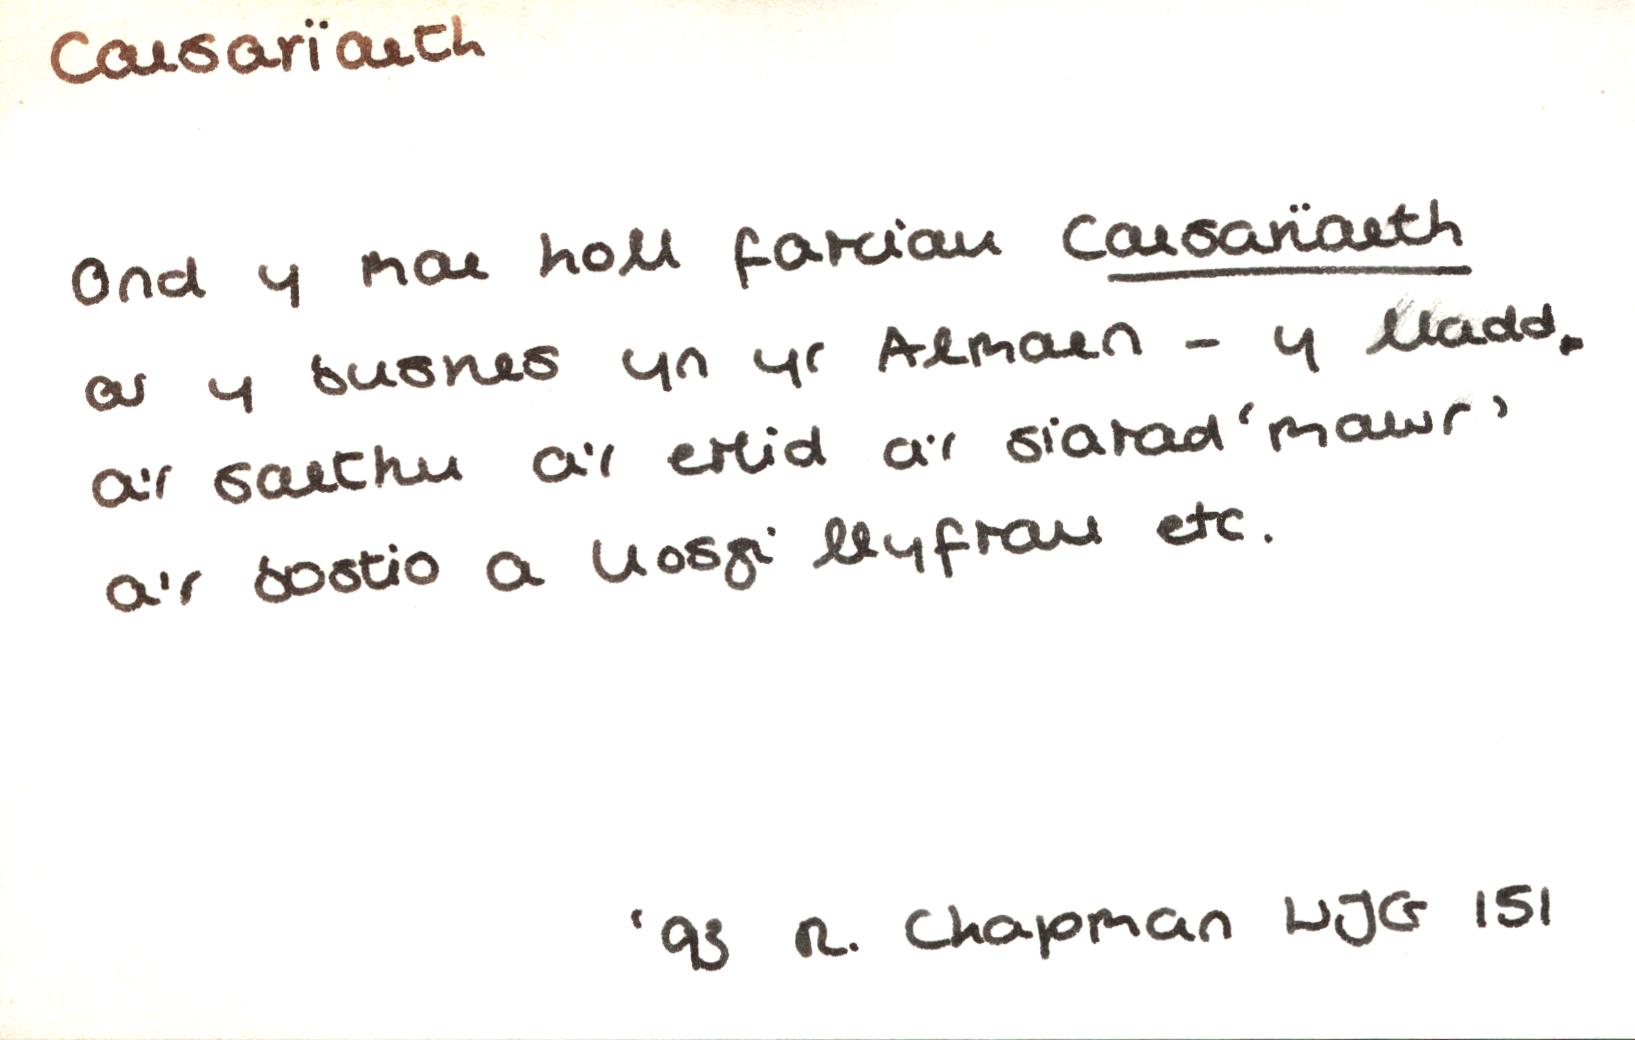 Caesarïaeth
Ond y mae holl farciau Caesarïaeth
ar y busnes yn yr Almaen - y lladd.
a'r saethu a'r erlid a'r siarad 'mawr'
a'r bostio a llosgi llyfrau etc.
'93 R. Chapman WJG 151